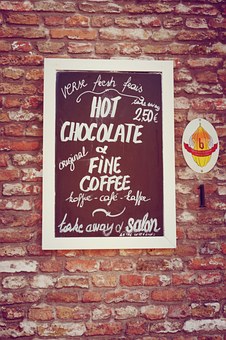 VERSE fresh frais
HOT
take away
2,50€
CHOCOLATE
&
original FINE
COFFEE
koffie - café - kaffee
take away of salon